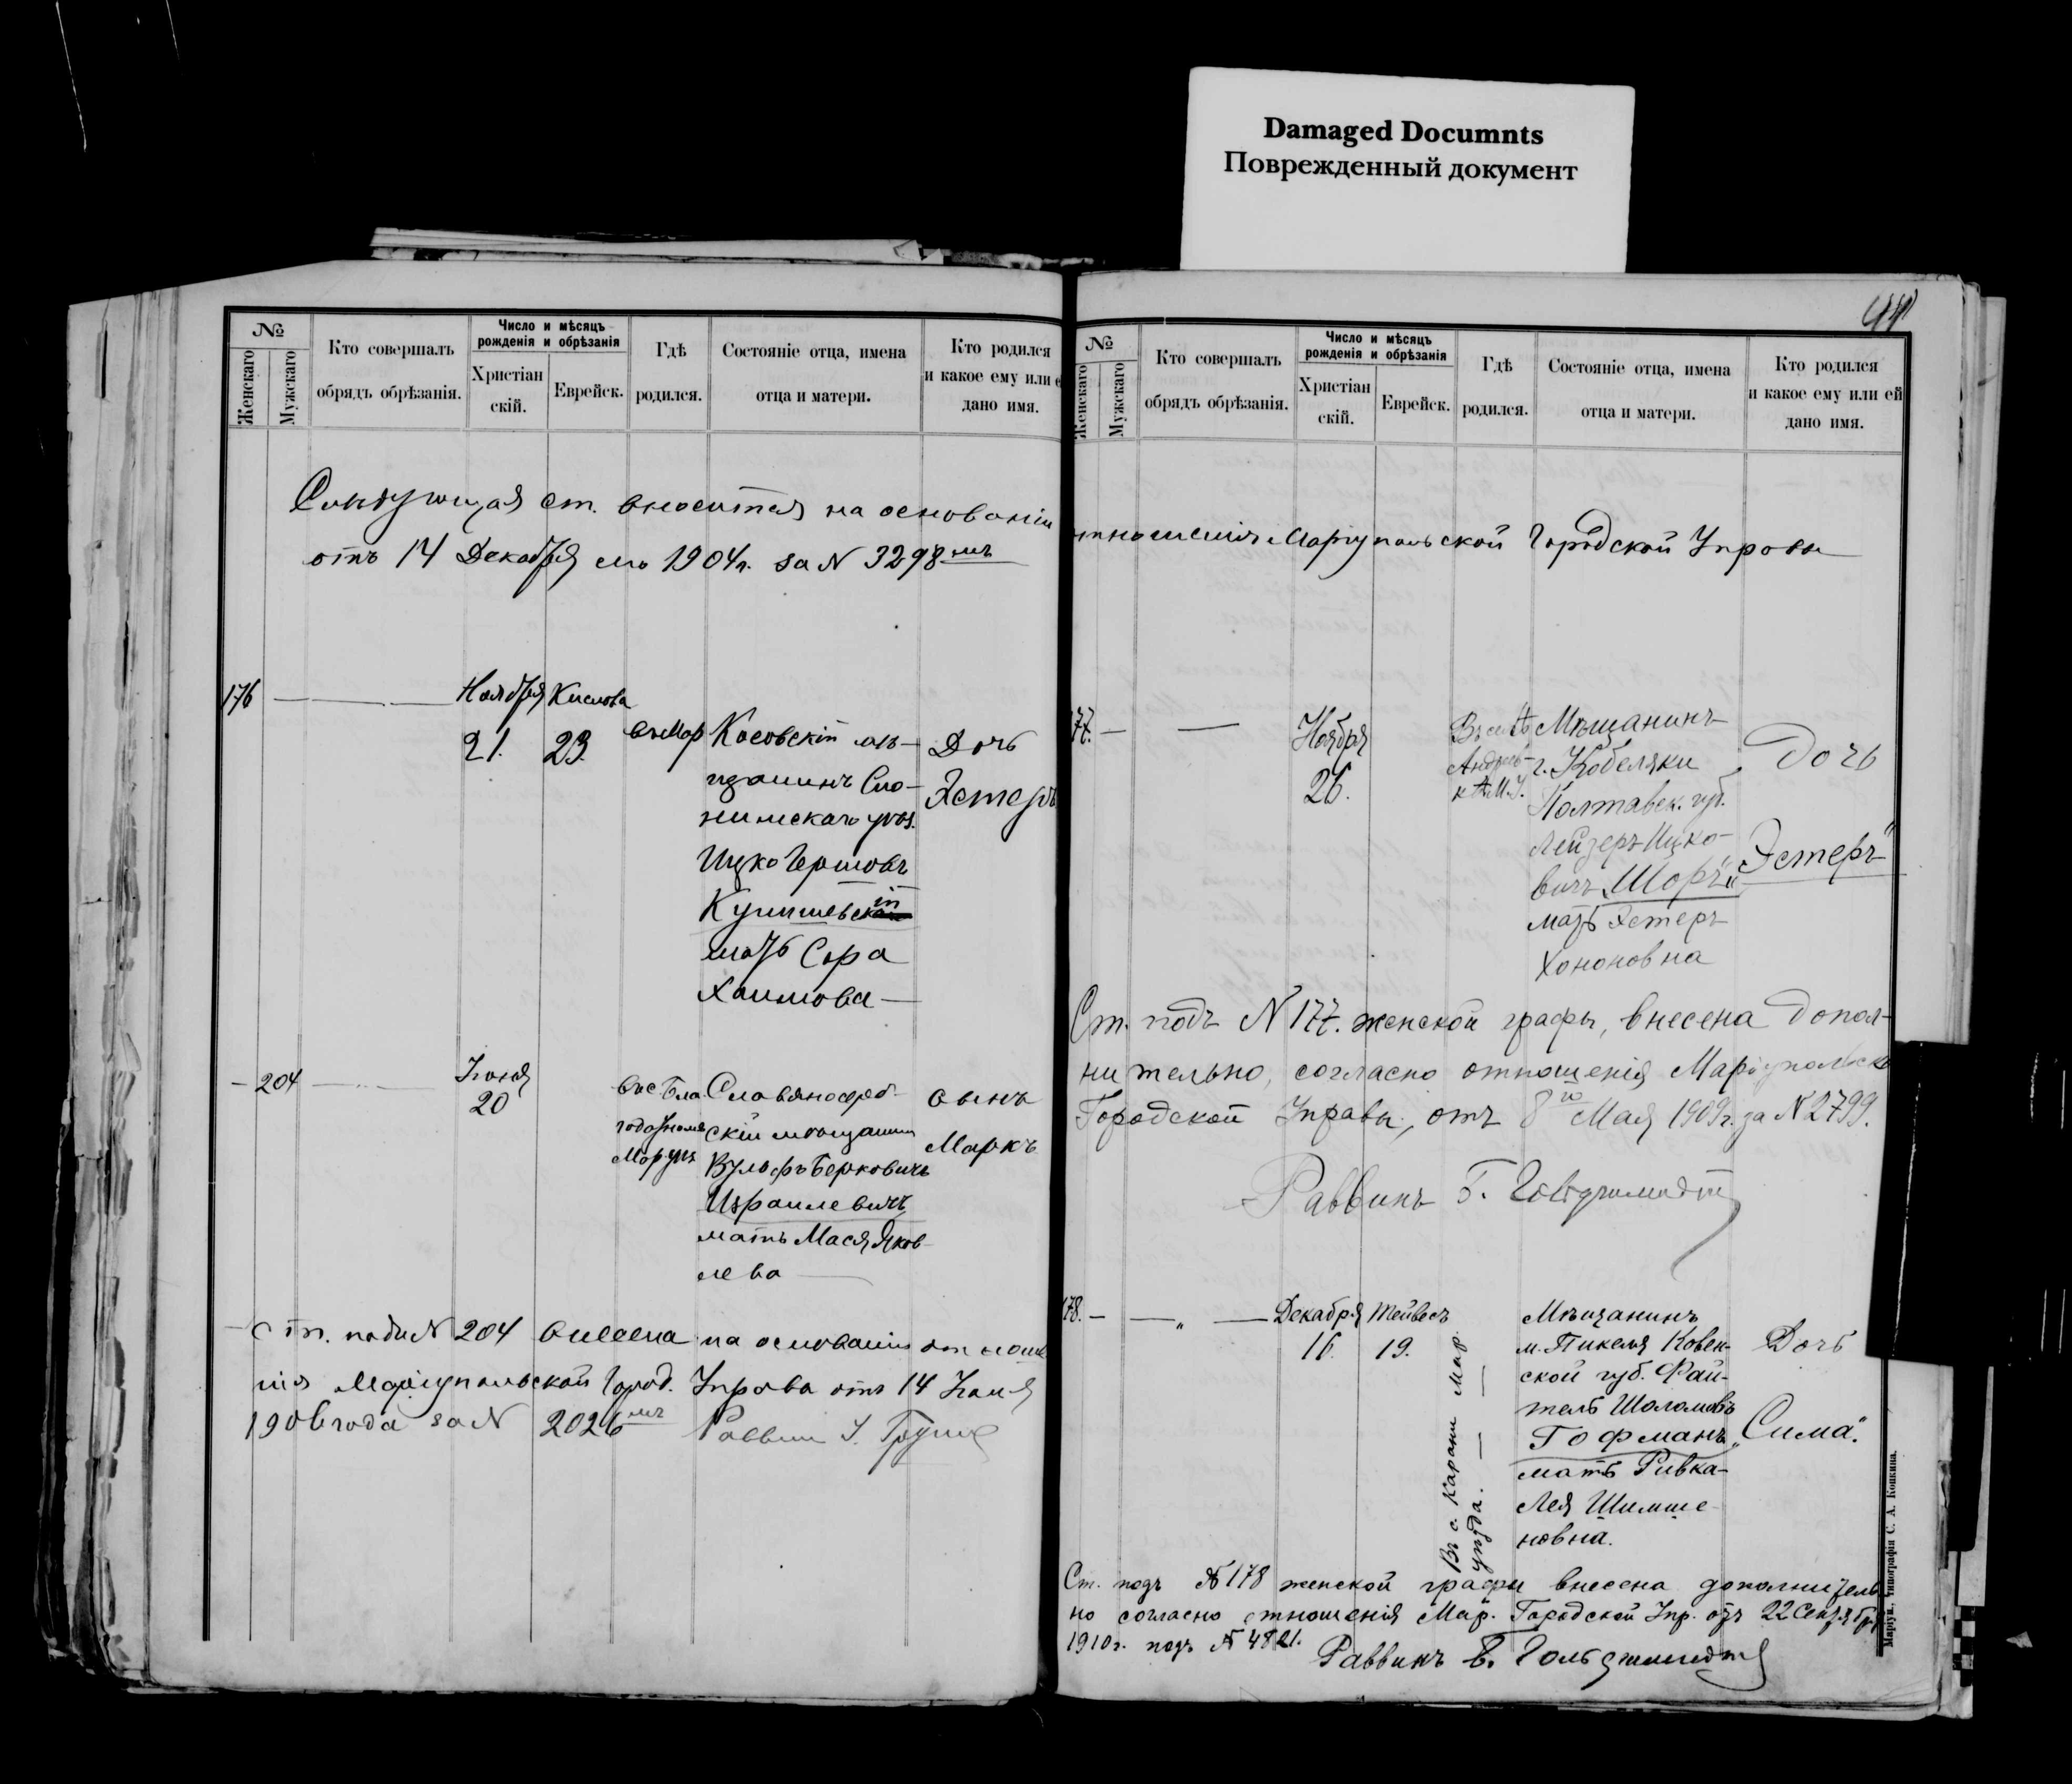 Damaged Documnts
Поврежденный документ
№
Женскаго
Мужскаго
Кто совершалъ
обрядъ обрѣзанія.
Число и мѣсяцъ
рожденія и обрѣзанія
Христіан
скій.
Еврейск.
Гдѣ
родился.
Состояніе отца, имена
отца и матери.
Кто родился
и какое ему или е
дано имя.
Слѣдующая ст. вносится на основаніи
отъ 14 Декабря 1904г. за N 3298
176
Ноября
21.
Кислова
23.
Косовскій мѣ-
щанинъ Сло-
нимскаго уѣз.
Ицко Гершовъ
мать Сора
Хаимова
Дочь
Эстеръ
204
Іюня
20
Славяносерб-
скій мѣщанин
Вульфъ Берковичъ
Израилевичъ
мать Мася Яков-
лева
сынъ
Маркъ
Ст. подъ N 204 внесена на основаніи отноше
нія Маріупольской Город. Управы отъ 14 Іюня
1906 года за N 2026
Раввин
№
Женскаго
Мужскаго
Кто совершалъ
обрядъ обрѣзанія.
Число и мѣсяцъ
рожденія и обрѣзанія
Христіан
скій.
Еврейск.
Гдѣ
родился.
Состояніе отца, имена
отца и матери.
Кто родился
и какое ему или ей
дано имя.
отношенія Маріупольской Городской Управы
177.
Ноября
26.
Мѣщанинъ
г. Кобеляки
Полтавск. губ.
Лейзеръ Ицко-
вичъ „Шоръ“
мать Эстеръ
Хононовна
Дочь
„Эстеръ“
Ст. подъ N 177. женской графы, внесена допол-
нительно, согласно отношенія Маріупольск
Городской Управы, отъ 8го Мая 1909г. за N 2799.
Раввинъ Гольдшмидтъ
178.
Декабря
16.
Тейвесъ
19.
Въ с. Карани Мар.
уѣзда.
Мѣщанинъ
м. Пикеля Ковен-
ской губ. Фай-
тель Шоломовъ
Гофманъ
мать Ривка-
Лея Шимше-
новна.
Дочь
„Сима“.
Ст. подъ № 178 женской графы внесена дополнитель
но согласно отношенія Мар. Городской Упр. отъ 22 Сентября
1910г. подъ № 4821.
Раввинъ Гольдшмидтъ
Маріуп., типографія С. А. Копкина.